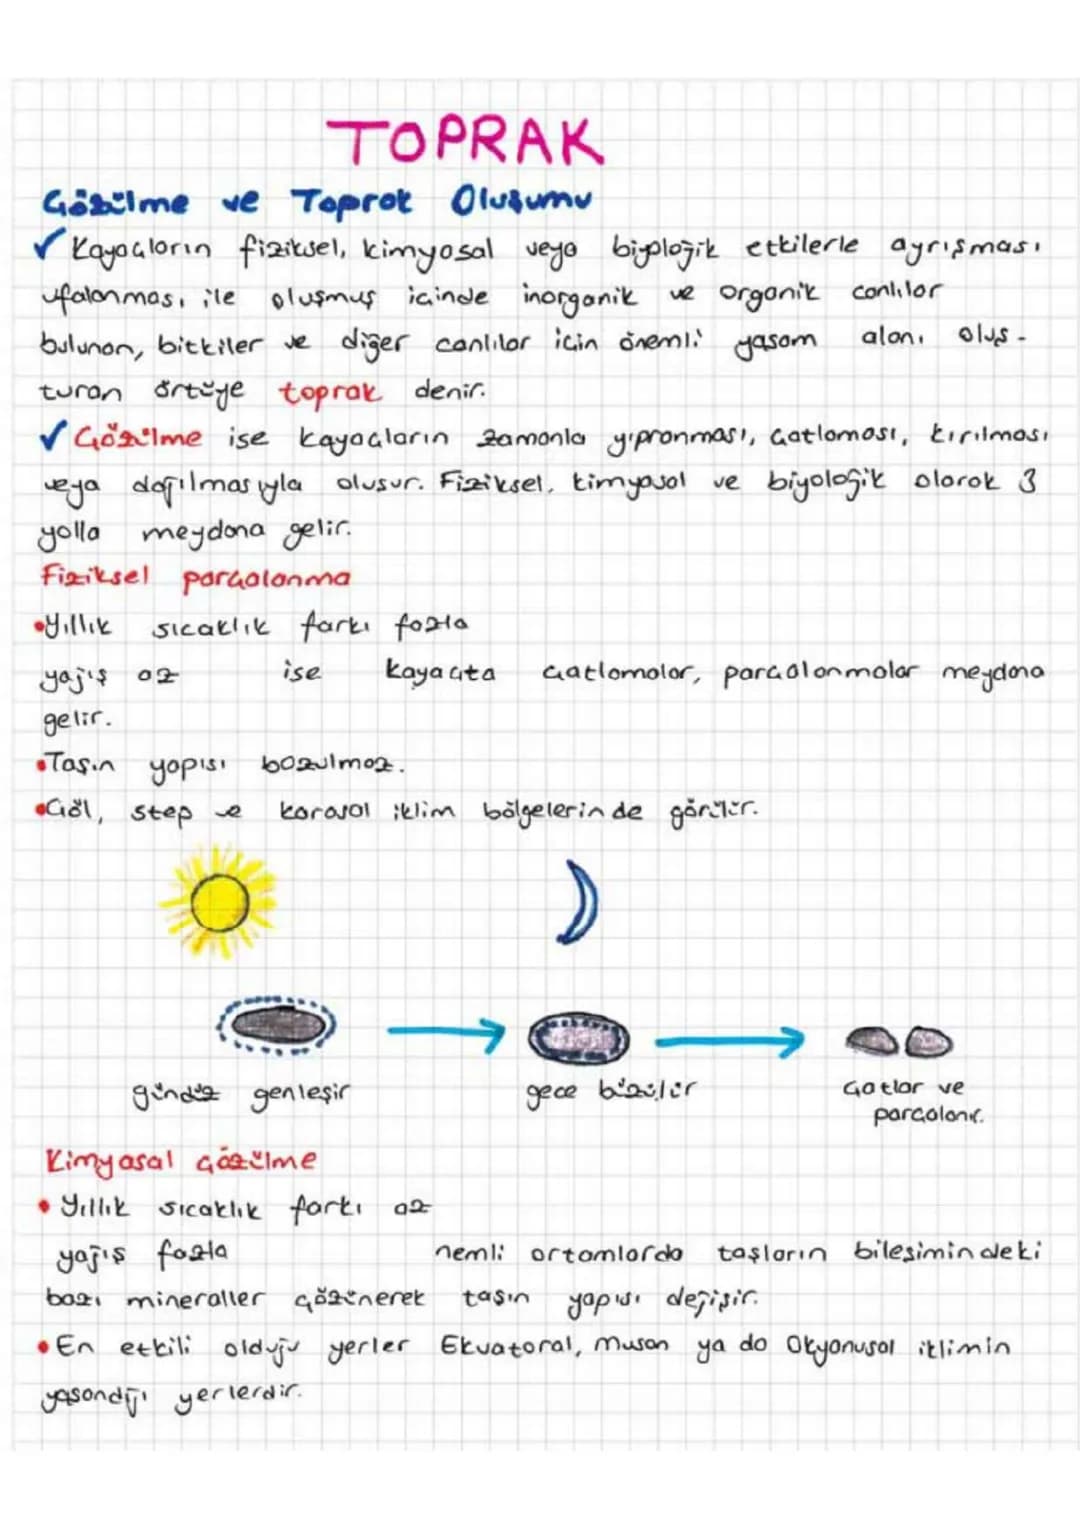 TOPRAK
Çözülme ve Toprak Oluşumu
✓ Kayaçların fiziksel, kimyasal veya biyolojik etkilerle ayrışması
ufalanması ile oluşmuş içinde inorganik ve organik canlılar
bulunan, bitkiler ve diğer canlılar için önemli yaşam alanı oluş-
turan örtüye toprak denir.
✓ Çözülme ise kayaçların zamanla yıpranması, çatlaması, kırılması
veya dağılmasıyla olusur. Fiziksel, kimyasal ve biyoloğik olarak 3
yolla meydana gelir.
Fiziksel parçalanma
• Yıllık sıcaklık farkı fazla
yağış az ise kayaçta çatlamalar, parçalanmalar meydana
gelir.
• Taşın yapısı bozulmaz.
• Çöl, step ve karasal iklim bölgelerinde görülür.
gündüz genleşir
gece büzülür
Çatlar ve
parçalanır.
Kimyasal çözülme
• Yıllık sıcaklık farkı az
yağış fazla nemli ortamlarda taşların bileşimindeki
bazı mineraller çözünerek taşın yapısı değişir.
• En etkili olduğu yerler Ekvatoral, muson ya da Okyanusal iklimin
yaşandığı yerlerdir.